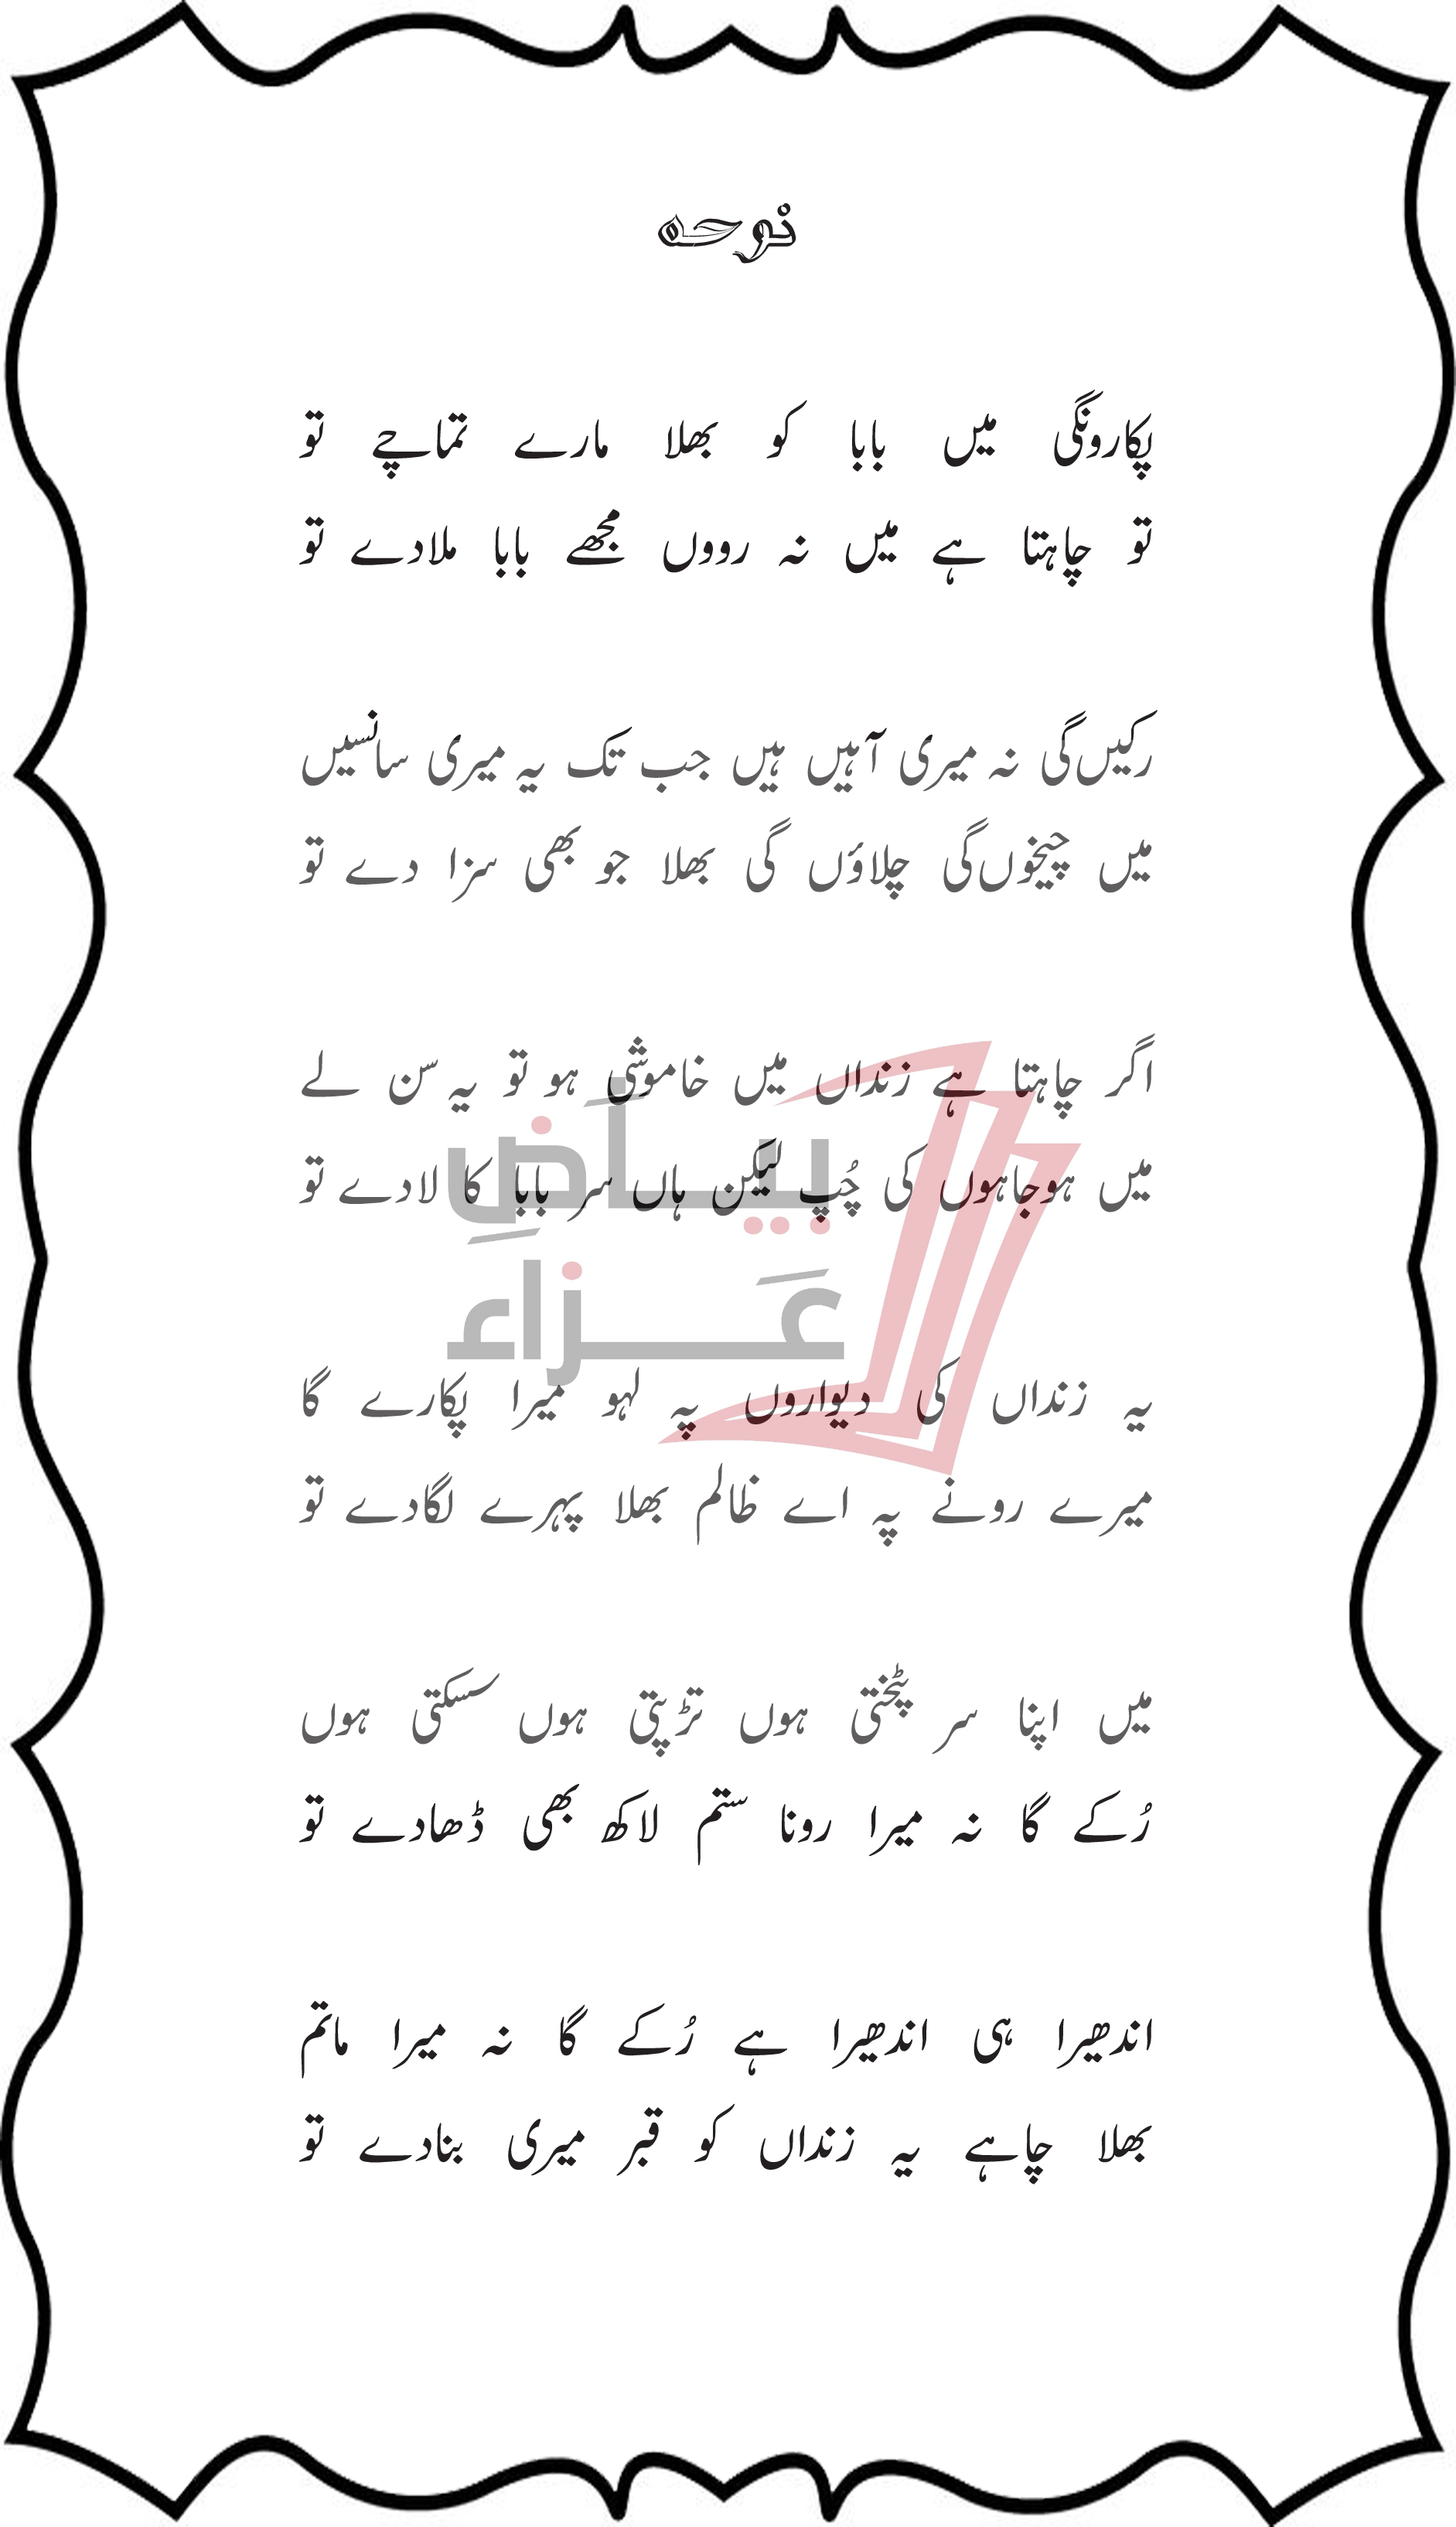 نوحہ
پکارونگی میں بابا کو بھلا مارے تماچے تو
تو چاہتا ہے میں نہ رووں مجھے بابا ملادے تو
رکیں گی نہ میری آہیں ہیں جب تک یہ میری سانسیں
میں چیخوں گی چلاؤں گی بھلا جو بھی سزا دے تو
اگر چاہتا ہے زنداں میں خاموشی ہو تو یہ سن لے
میں ہوجاہوں کی چُپ لیکن ہاں سر بابا کا لادے تو
بیاَضِ
عَزاء
یہ زنداں کی دیواروں پہ لہو میرا پکارے گا
میرے رونے پہ اے ظالم بھلا پہرے لگادے تو
میں اپنا سر پٹختی ہوں تڑپتی ہوں سسکتی ہوں
رُکے گا نہ میرا رونا ستم لاکھ بھی ڈھادے تو
اندھیرا ہی اندھیرا ہے رُکے گا نہ میرا ماتم
بھلا چاہے یہ زنداں کو قبر میری بنادے تو